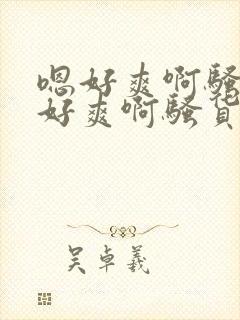 嗯好爽啊骚
好爽啊骚货
吴卓羲